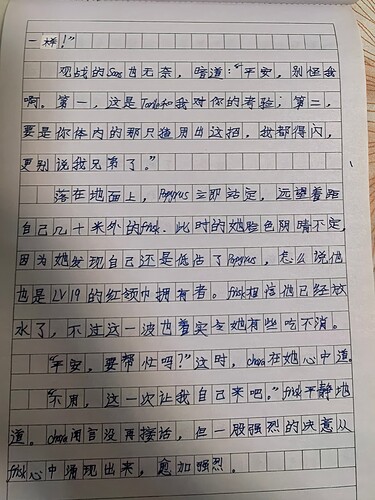 一样！”
观战的Sans也无奈，暗道：“平安，别怪我
啊。第一，这是Toriel和我对你的考验；第二，
要是你体内的那只植用出这招，我都得闪，
更别说我兄弟了。”
落在地面上，Papyrus立即站定，远望着距
自己几十米外的frisk。此时的她脸色阴晴不定，
因为她发现自己还是低估了Papyrus，怎么说他
也是LV19的红领巾拥有者。frisk相信他已经放
水了，不过这一波也着实令她有些吃不消。
“平安，要帮忙吗？”这时，chara在她心中道。
“不用，这一次让我自己来吧。”frisk平静地
道。chara闻言没再接话，但一股强烈的决意从
frisk心中涌现出来，愈加强烈。